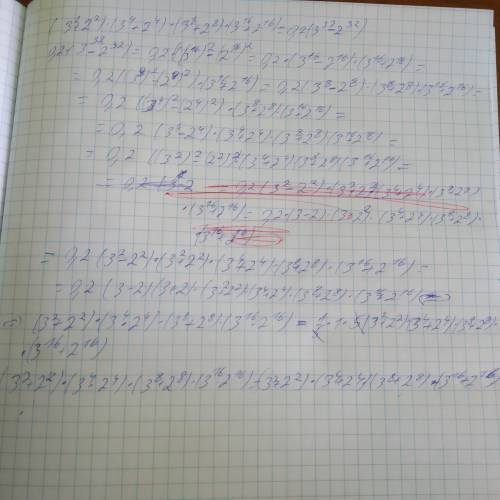 (3²+2²)·(3⁴+2⁴)·(3⁸+2⁸)·(3¹⁶+2¹⁶)=0,2(3³²-2³²)
0,2·(3³²-2³²)=0,2·((3¹⁶)²-(2¹⁶)²=0,2·(3¹⁶-2¹⁶)·(3¹⁶+2¹⁶)=
=0,2((3⁸)²-(2⁸)²)·(3¹⁶+2¹⁶)=0,2(3⁸-2⁸)·(3⁸+2⁸)·(3¹⁶+2¹⁶)=
=0,2((3⁴)²-(2⁴)²)·(3⁸+2⁸)(3¹⁶+2¹⁶)=
=0,2(3⁴-2⁴)·(3⁴+2⁴)·(3⁸+2⁸)(3¹⁶+2¹⁶)=
=0,2((3²)²-(2²)²)(3⁴+2⁴)(3⁸+2⁸)(3¹⁶+2¹⁶)=
=0,2(3²-2²)·(3²+2²)·(3⁴+2⁴)·(3⁸+2⁸)·(3¹⁶+2¹⁶)=
=0,2(3-2)(3+2)·(3²+2²)(3⁴+2⁴)·(3⁸+2⁸)·(3¹⁶+2¹⁶)
(3²+2²)·(3⁴+2⁴)·(3⁸+2⁸)(3¹⁶+2¹⁶)=1/5·1·5(3²+2²)(3⁴+2⁴)·(3⁸+2⁸)
·(3¹⁶+2¹⁶)
(3²+2²)·(3⁴+2⁴)·(3⁸+2⁸)·(3¹⁶+2¹⁶)=(3²+2²)·(3⁴+2⁴)(3⁸+2⁸)·(3¹⁶+2¹⁶)